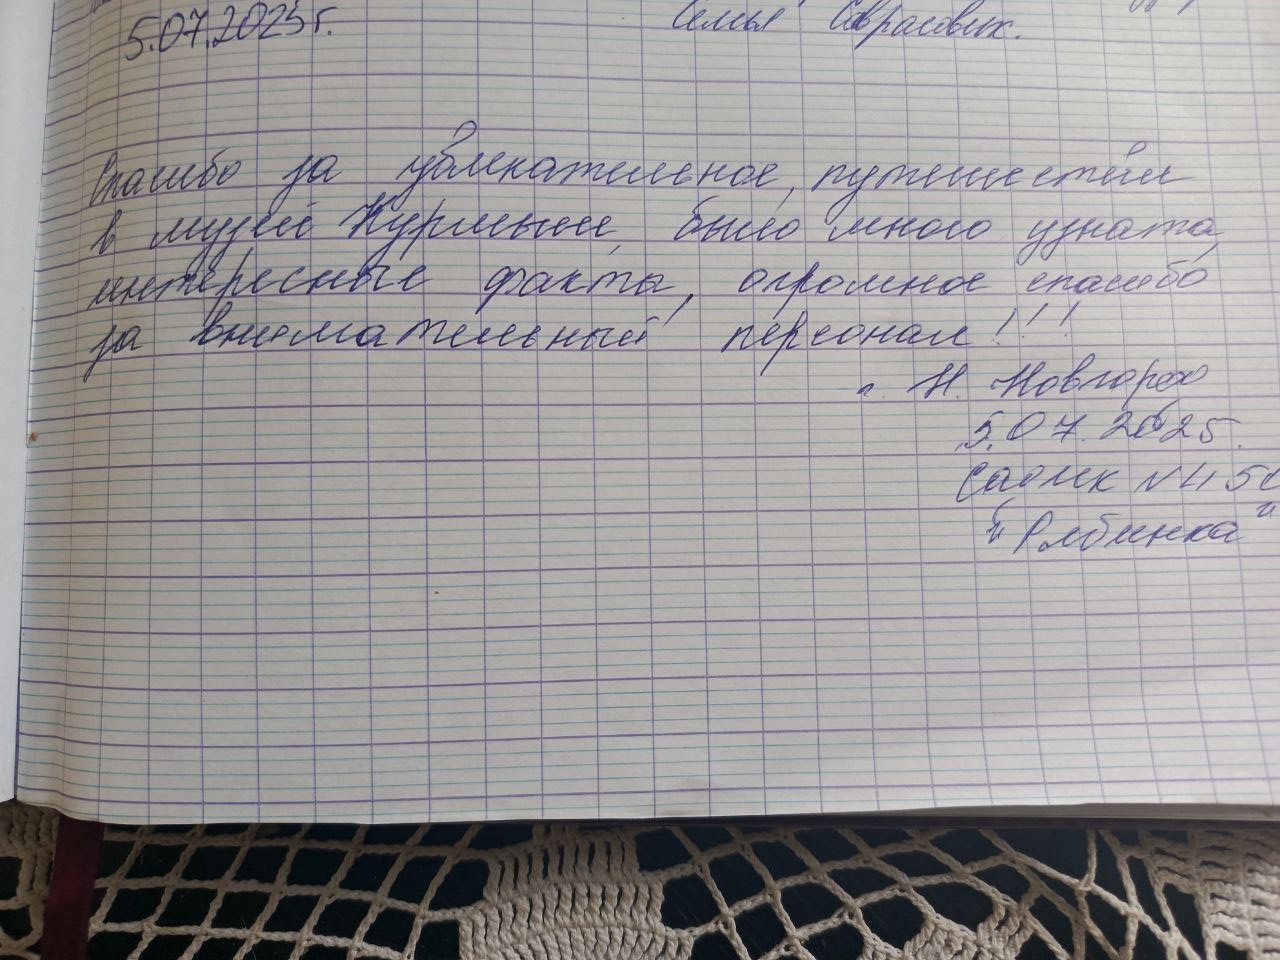 5.07.2025г. Семья Саврасовых.
Спасибо за увлекательное, путешествие
в музей Курмыши, было много узната,
интересные факта, огромное спасибо
за внимательный персонал!!!
г. Н. Новгород
5.07.2025.
Садик N 450
"Рябинка"